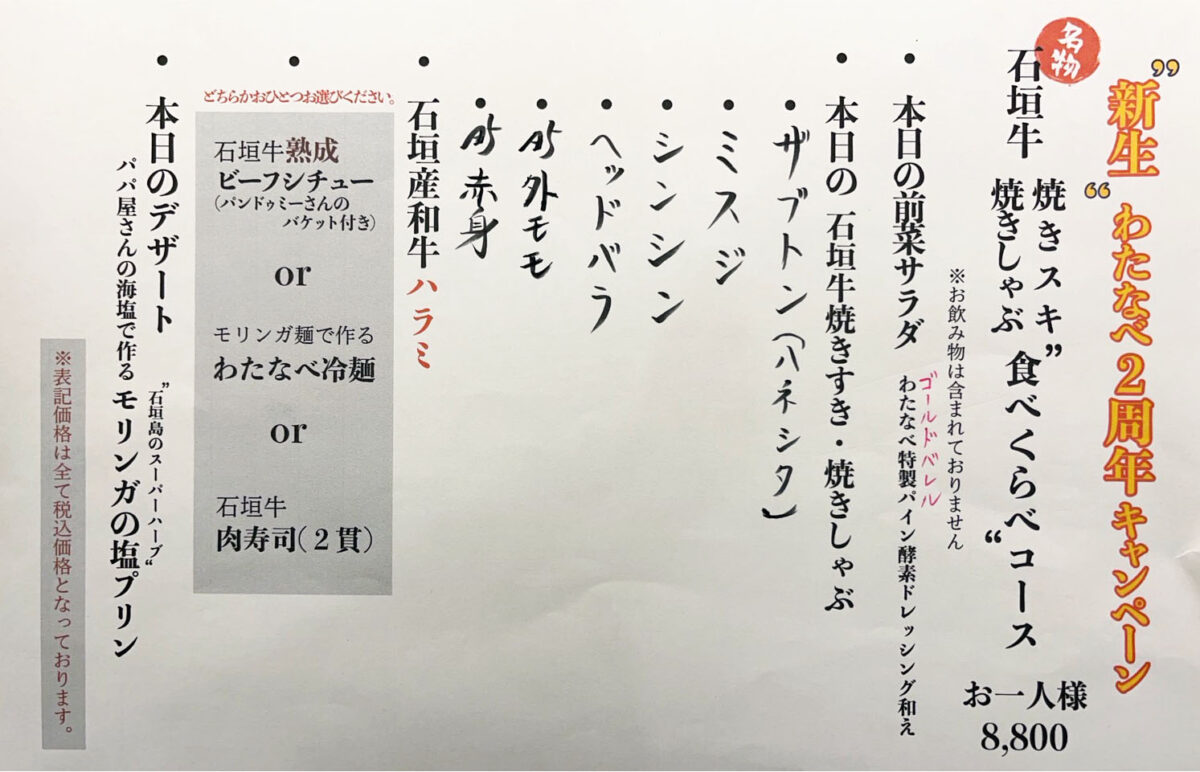 ”新生“わたなべ2周年キャンペーン
名物
石垣牛 焼きスキ 焼きしゃぶ ”食べくらべ“コース
お一人様
8,800
※お飲み物は含まれておりません
• 本日の前菜サラダ わたなべ特製パイン酵素ドレッシング和え
ゴールドバレル
• 本日の 石垣牛焼きすき・焼きしゃぶ
• ザブトン(ハネシタ)
• ミスジ
• シンシン
• ヘッドバラ
• A5外モモ
• A5赤身
• 石垣産和牛ハラミ
•
どちらかおひとつお選びください。
石垣牛熟成
ビーフシチュー
(パンドゥミーさんの
バケット付き)
or
モリンガ麺で作る
わたなべ冷麺
or
石垣牛
肉寿司(2貫)
• 本日のデザート
”石垣島のスーパーハーブ“
パパ屋さんの海塩で作るモリンガの塩プリン
※表記価格は全て税込価格となっております。